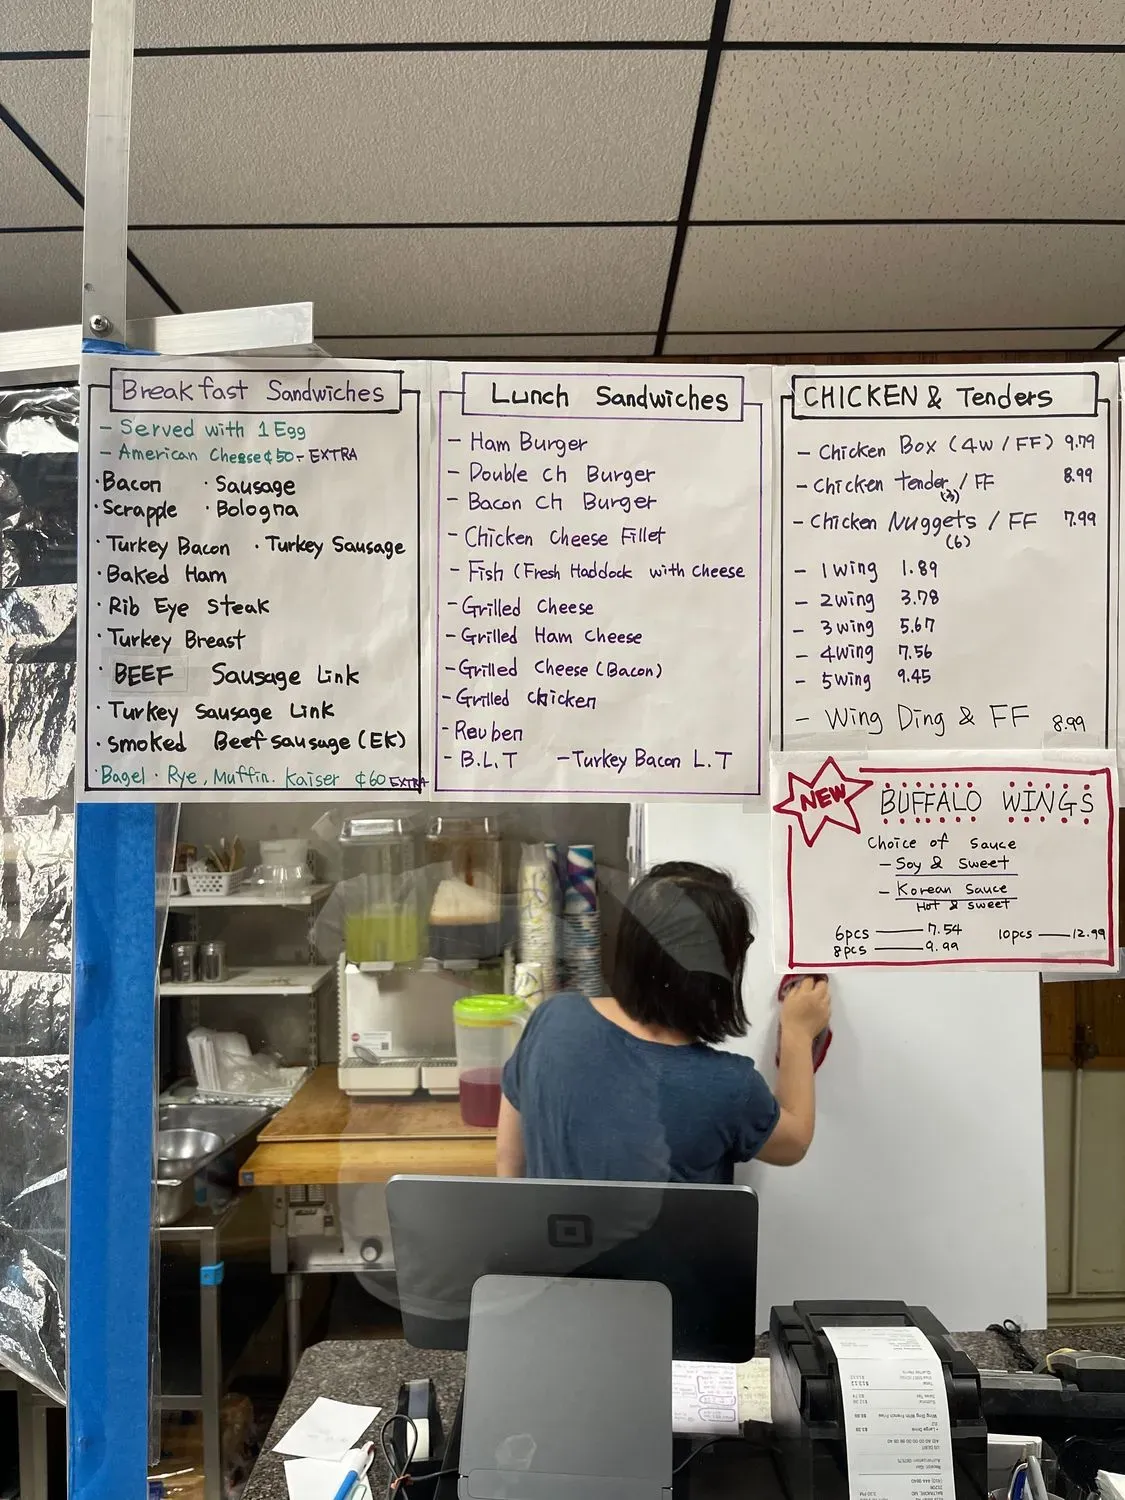 Breakfast Sandwiches
- Served with 1 Egg
- American Cheese ¢50 - EXTRA
· Bacon · Sausage
· Scrapple · Bologna
· Turkey Bacon · Turkey Sausage
· Baked Ham
· Rib Eye Steak
· Turkey Breast
· BEEF Sausage Link
· Turkey Sausage Link
· Smoked Beef sausage (EK)
· Bagel · Rye, Muffin. Kaiser ¢60 EXTRA
Lunch Sandwiches
- Ham Burger
- Double ch Burger
- Bacon ch Burger
- Chicken Cheese Fillet
- Fish (Fresh Haddock with cheese
- Grilled Cheese
- Grilled Ham Cheese
- Grilled Cheese (Bacon)
- Grilled Chicken
- Reuben
- B.L.T - Turkey Bacon L.T
CHICKEN & Tenders
- Chicken Box (4w / FF) 9.79
- Chicken tender / FF 8.99
(3)
- Chicken Nuggets / FF 7.99
(6)
- 1 wing 1.89
- 2 wing 3.78
- 3 wing 5.67
- 4 wing 7.56
- 5 wing 9.45
- Wing Ding & FF 8.99
NEW
BUFFALO WINGS
Choice of sauce
- Soy & Sweet
- Korean Sauce
Hot & sweet
6pcs — 7.54 10pcs — 12.99
8pcs — 9.99